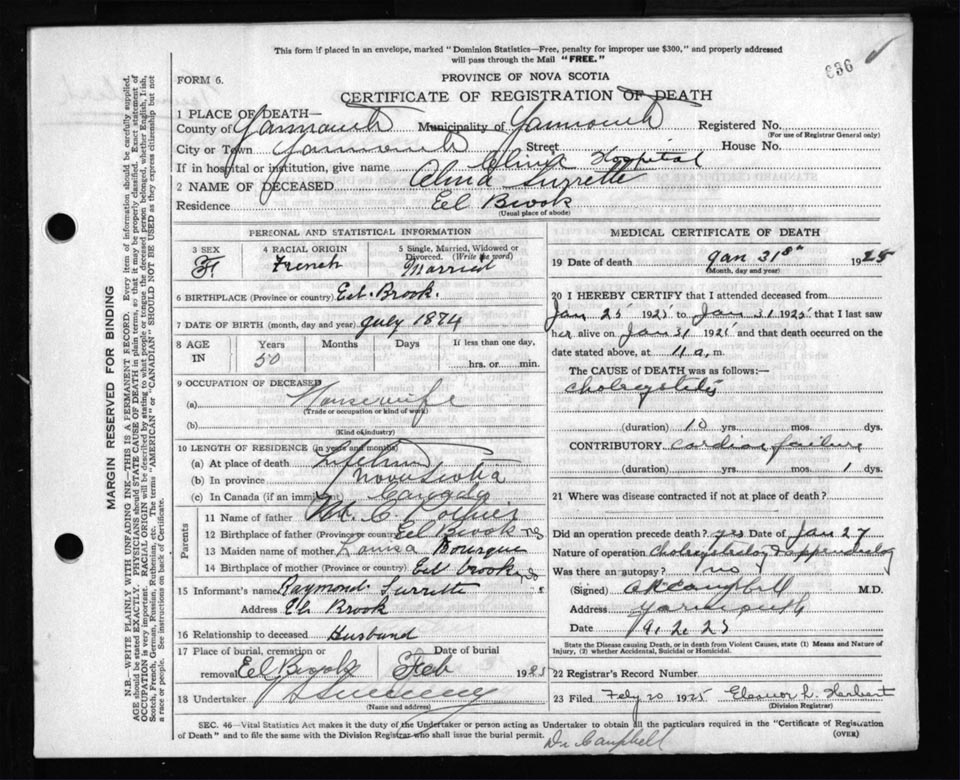 This form if placed in an envelope, marked "Dominion Statistics—Free, penalty for improper use $300," and properly addressed
will pass through the Mail "FREE."
336
FORM 6.
PROVINCE OF NOVA SCOTIA
CERTIFICATE OF REGISTRATION OF DEATH
1 PLACE OF DEATH—
County of Yarmouth Municipality of Yarmouth Registered No.
(For use of Registrar General only)
City or Town Yarmouth Street House No.
If in hospital or institution, give name Clinic Hospital
2 NAME OF DECEASED Alma Surrette
Residence Eel Brook
(Usual place of abode)
PERSONAL AND STATISTICAL INFORMATION
3 SEX F
4 RACIAL ORIGIN French
5 Single, Married, Widowed or Divorced. (Write the word) Married
6 BIRTHPLACE (Province or country) Eel Brook.
7 DATE OF BIRTH (month, day and year) July 1874
8 AGE IN Years 50 Months Days If less than one day, hrs. or min.
9 OCCUPATION OF DECEASED
(a) Housewife
(Trade or occupation or kind of work)
(b)
(Kind of industry)
10 LENGTH OF RESIDENCE (in years and months)
(a) At place of death Lifetime
(b) In province Nova Scotia
(c) In Canada (if an immigrant) Canada
Parents
11 Name of father C. Pothier
12 Birthplace of father (Province or country) Eel Brook NS
13 Maiden name of mother Louisa Bourque
14 Birthplace of mother (Province or country) Eel brook
15 Informant's name Raymond Surrette
Address Eel Brook
16 Relationship to deceased Husband
17 Place of burial, cremation or removal Eel Brook
Date of burial Feb 1925
18 Undertaker Sweeney
(Name and address)
MEDICAL CERTIFICATE OF DEATH
19 Date of death Jan 31st 1925
(Month, day and year)
20 I HEREBY CERTIFY that I attended deceased from
Jan 25 1925 to Jan 31 1925 that I last saw
her alive on Jan 31 1925 and that death occurred on the
date stated above, at 11 a. m.
The CAUSE of DEATH was as follows:—
Cholecystitis
(duration) 10 yrs. mos. dys.
CONTRIBUTORY Cardiac failure
(duration) yrs. mos. 1 dys.
21 Where was disease contracted if not at place of death?
Did an operation precede death? yes Date of Jan 27
Nature of operation
Was there an autopsy? no
(Signed) Campbell M.D.
Address Yarmouth
Date 9.2.25
State the Disease causing Death, or in death from Violent Causes, state (1) Means and Nature of
Injury, (2) whether Accidental, Suicidal or Homicidal.
22 Registrar's Record Number
23 Filed Feby 20 1925 Eleanor L. Herbert
(Division Registrar)
SEC. 46—Vital Statistics Act makes it the duty of the Undertaker or person acting as Undertaker to obtain all the particulars required in the "Certificate of Registration
of Death" and to file the same with the Division Registrar who shall issue the burial permit.
(OVER)
Dr Campbell
MARGIN RESERVED FOR BINDING
N.B.—WRITE PLAINLY WITH UNFADING INK—THIS IS A PERMANENT RECORD. Every item of information should be carefully supplied.
AGE should be stated EXACTLY. PHYSICIANS should STATE CAUSE OF DEATH in plain terms, so that it may be properly classified. Exact statement of
OCCUPATION is very important. RACIAL ORIGIN will be described by stating to what people or tongue the deceased person belonged, whether English, Irish,
Scotch, French, German, Russian, Ruthenian, etc. The terms "AMERICAN" or "CANADIAN" SHOULD NOT BE USED as they express citizenship but not
a race or people. See instructions on back of certificate.